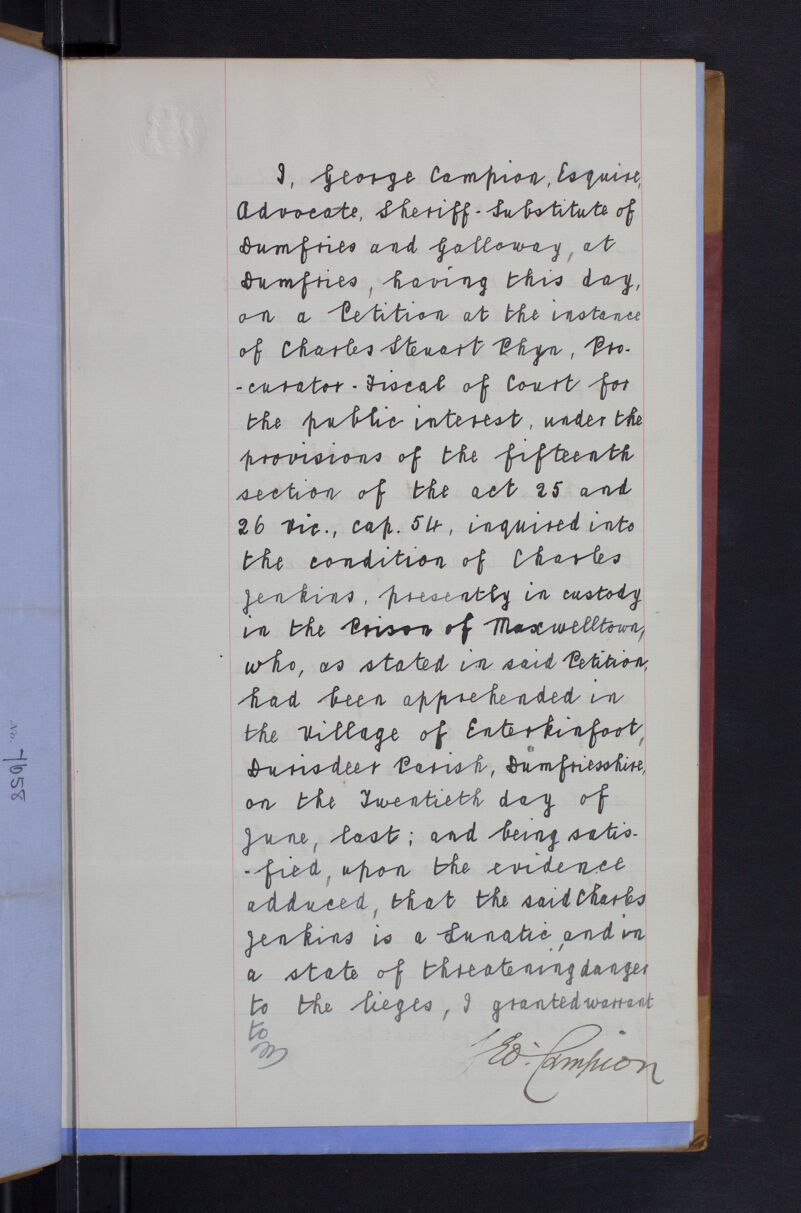 I, George Campion, Esquire,
Advocate, Sheriff-Substitute of
Dumfries and Galloway, at
Dumfries, having this day,
on a Petition at the instance
of Charles Steuart Phyn, Pro-
-curator-Fiscal of Court for
the public interest, under the
provisions of the fifteenth
section of the act 25 and
26 Vic., cap. 54, inquired into
the condition of Charles
Jenkins, presently in custody
in the Prison of Maxwelltown,
who, as stated in said Petition,
had been apprehended in
the Village of Enterkinfoot,
Durisdeer Parish, Dumfriesshire,
on the Twentieth day of
June, last; and being satis-
-fied, upon the evidence
adduced, that the said Charles
Jenkins is a Lunatic, and in
a state of threatening danger
to the lieges, I granted warrant
to
Geo. Campion
No. 7658